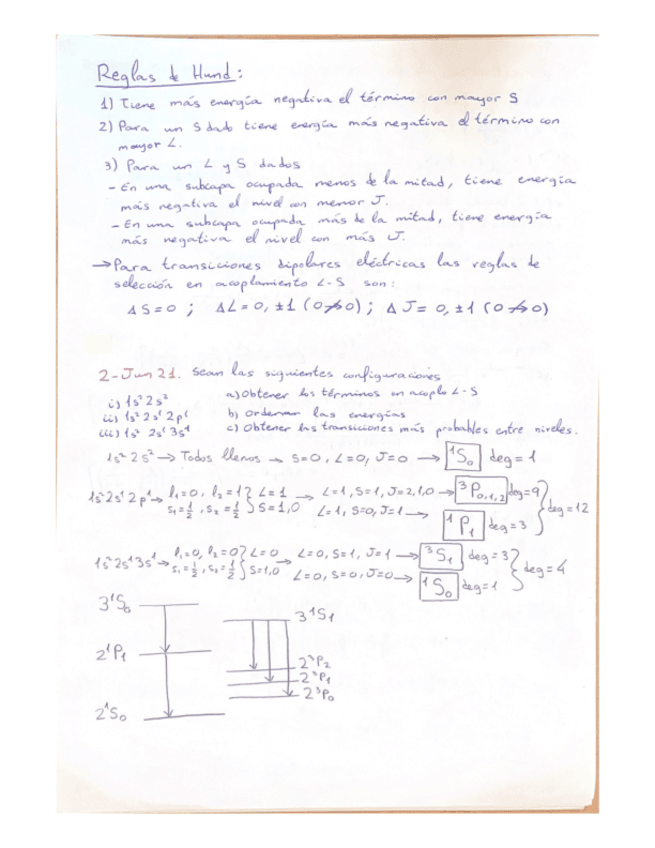 Reglas de Hund:
1) Tiene más energía negativa el término con mayor S
2) Para un S dado tiene energía más negativa el término con
mayor L.
3) Para un L y S dados
- En una subcapa ocupada menos de la mitad, tiene energía
más negativa el nivel con menor J.
- En una subcapa ocupada más de la mitad, tiene energía
más negativa el nivel con más J.
→ Para transiciones dipolares eléctricas las reglas de
selección en acoplamiento L-S son:
ΔS=0 ; ΔL=0, ±1 (0↛0) ; ΔJ=0, ±1 (0↛0)
2-Jun 21. Sean las siguientes configuraciones
i) 1s² 2s² a) Obtener los términos en acoplo L-S
ii) 1s² 2s¹ 2p¹ b) Ordenar las energías
iii) 1s² 2s¹ 3s¹ c) Obtener las transiciones más probables entre niveles.
1s² 2s² → Todos llenos → S=0, L=0, J=0 → ¹S₀ deg=1
1s² 2s¹ 2p¹ → l₁=0, l₂=1 } L=1 → L=1, S=1, J=2,1,0 → ³P₀,₁,₂ deg=9 } deg=12
s₁=½, s₂=½ } S=1,0 L=1, S=0, J=1 → ¹P₁ deg=3
1s² 2s¹ 3s¹ → l₁=0, l₂=0 } L=0 → L=0, S=1, J=1 → ³S₁ deg=3 } deg=4
s₁=½, s₂=½ } S=1,0 L=0, S=0, J=0 → ¹S₀ deg=1
3¹S₀
3¹S₁
2¹P₁
2³P₂
2³P₁
2³P₀
2¹S₀